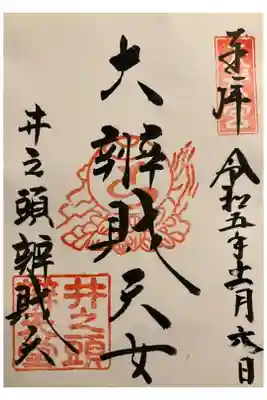 奉拝
令和五年十一月六日
大辨財天女
井之頭辨財天
井之頭